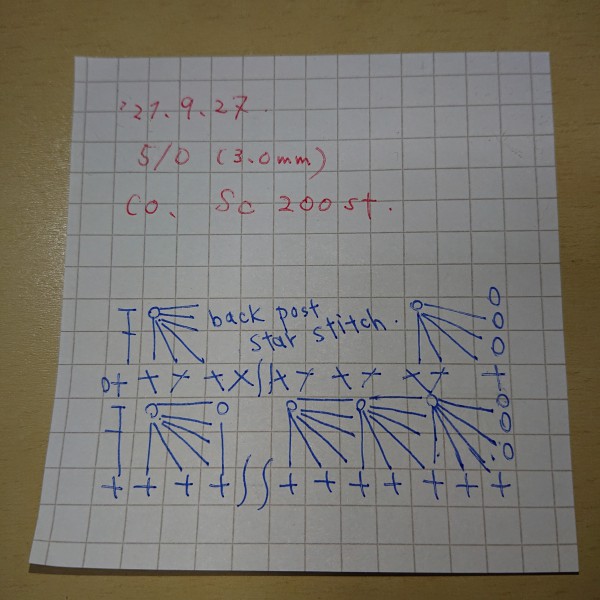 '21.9.27.
5/0 (3.0mm)
CO. Sc 200st.
back post
star stitch.